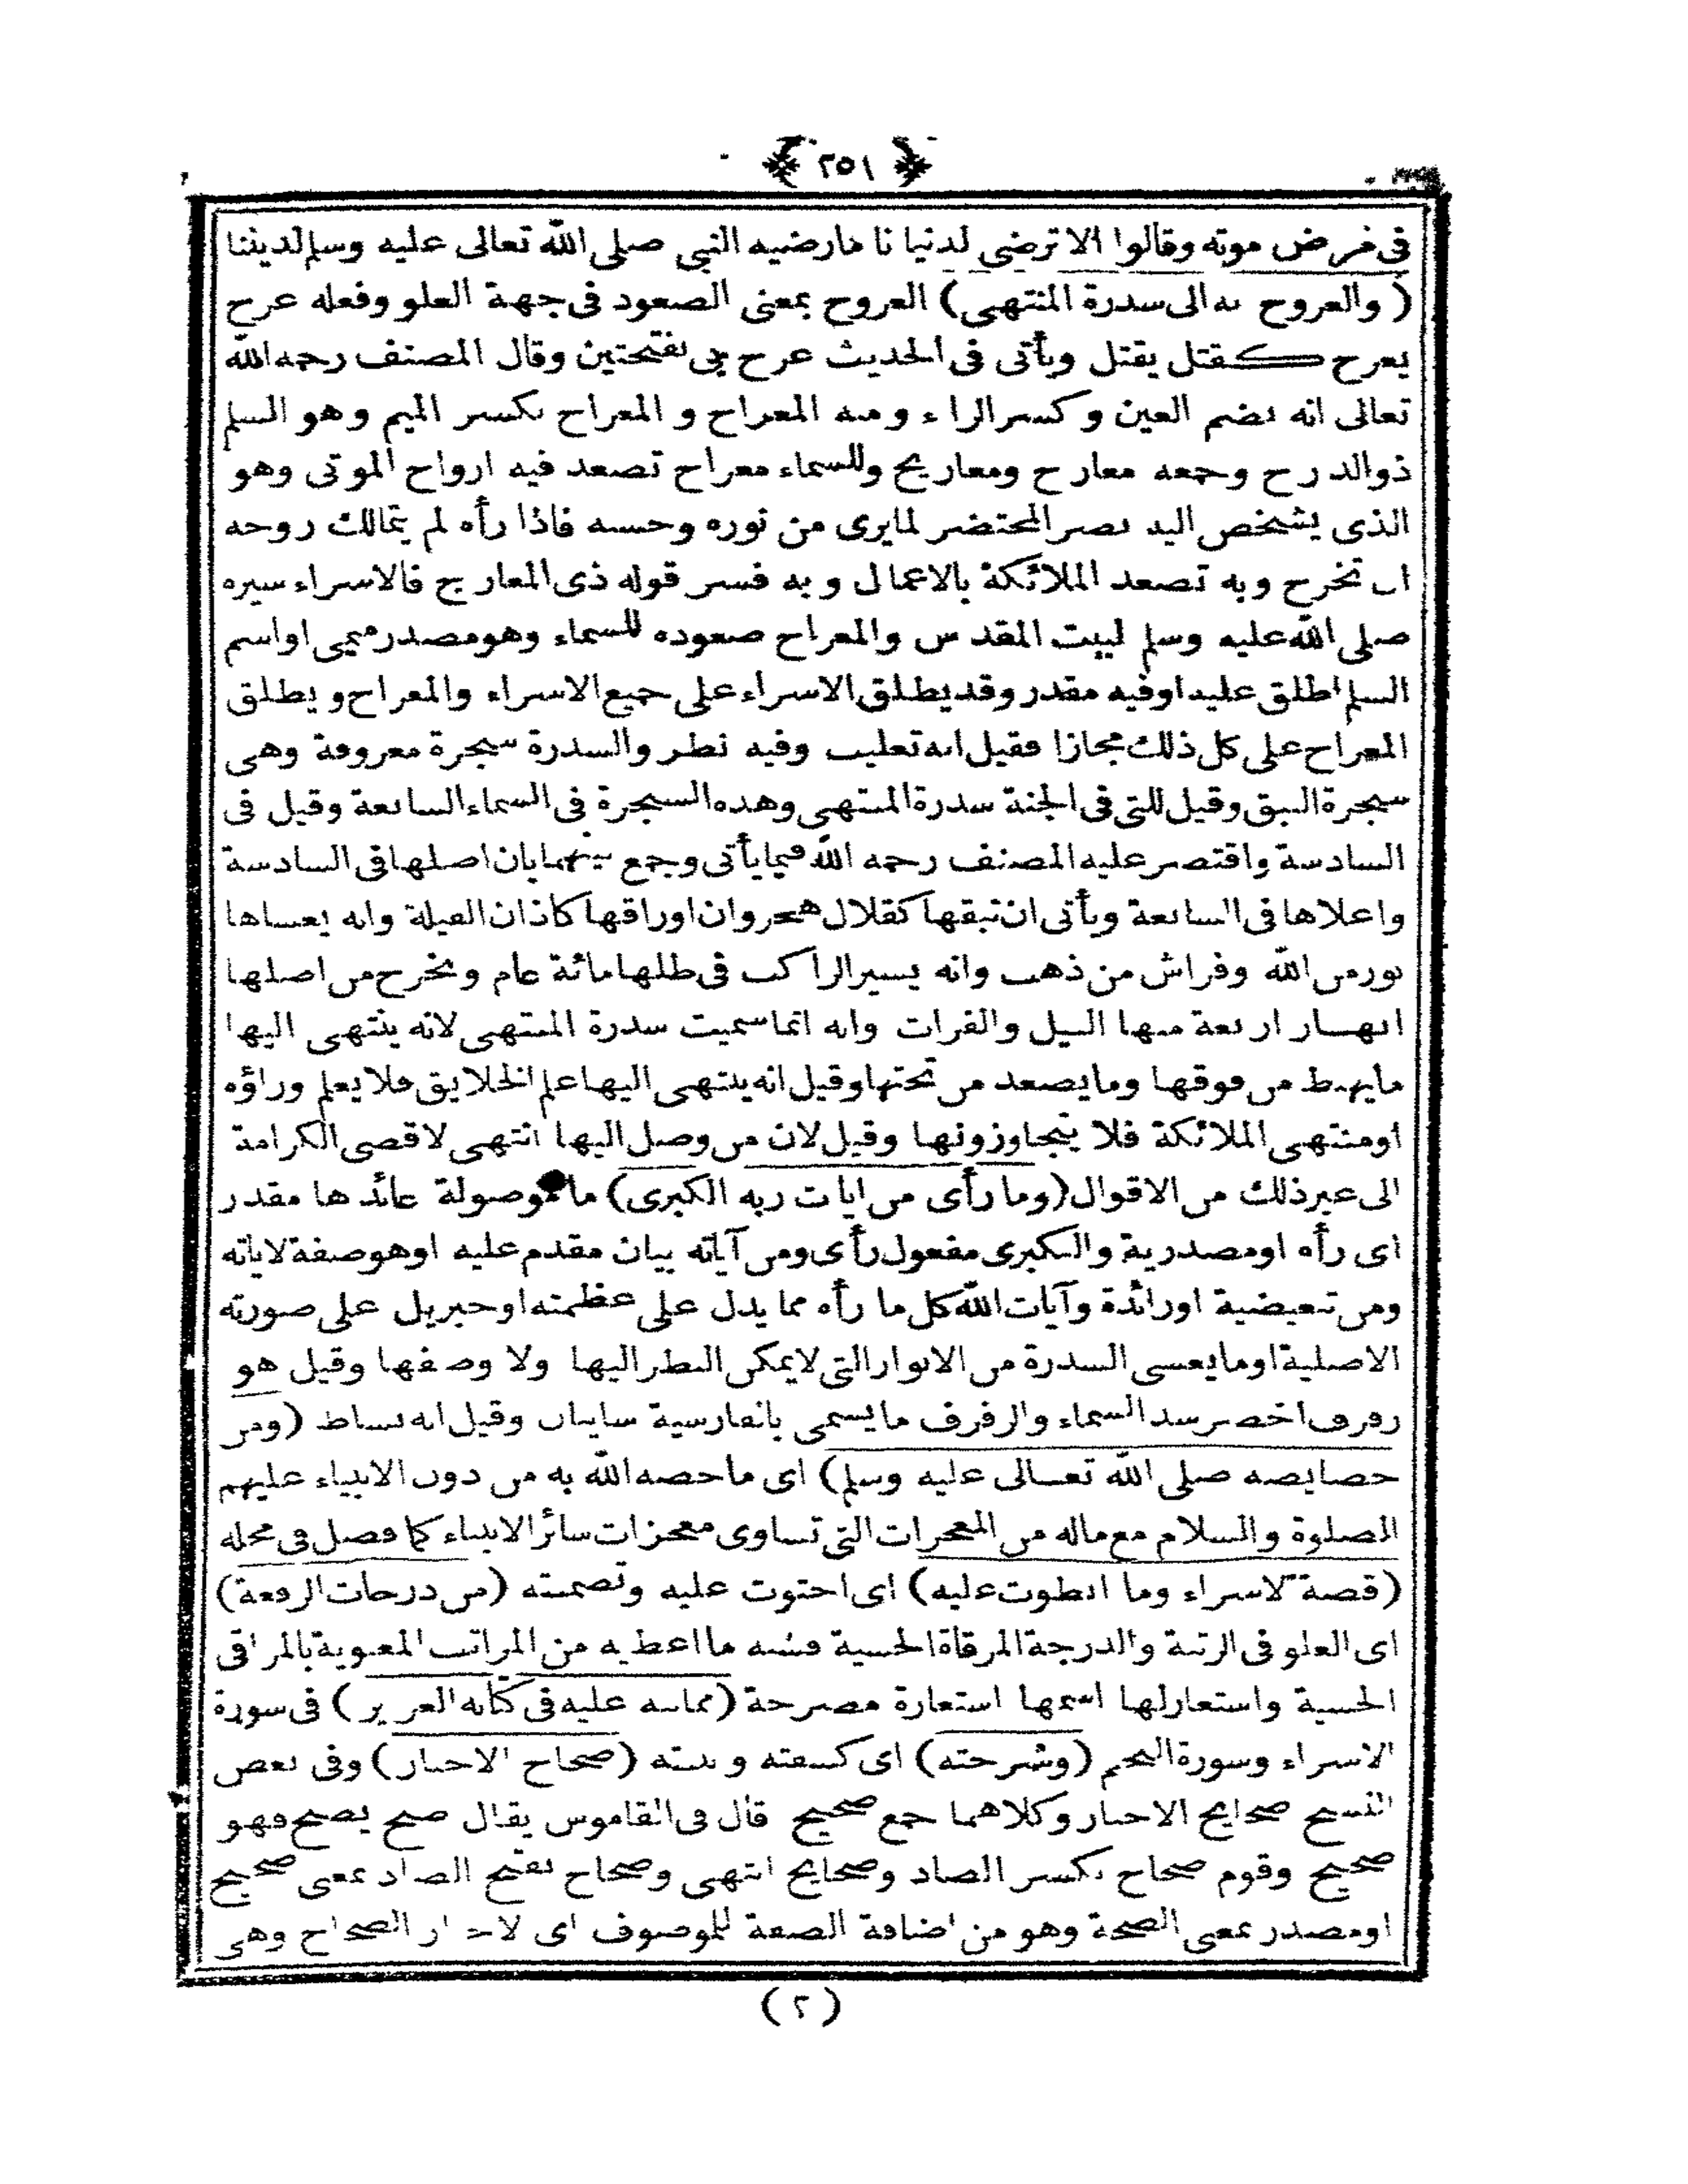 ﴿ ٢٥١ ﴾
فى مرض موته وقالوا الا ترضى لدنيا نا مارضيه النبى صلى الله تعالى عليه وسلم لديننا
( والعروج به الى سدرة المنتهى ) العروج بمعنى الصعود فى جهة العلو وفعله عرج
يعرج كقتل يقتل ويأتى فى الحديث عرج بى بفتحتين وقال المصنف رحمه الله
تعالى انه بضم العين وكسر الراء ومنه المعراج و المعراج بكسر الميم وهو السلم
ذوالدرج وجمعه معارج ومعاريج وللسماء معراج تصعد فيه ارواح الموتى وهو
الذى يشخص اليه بصر المحتضر لمايرى من نوره وحسنه فاذا رأه لم يتمالك روحه
ان تخرج وبه تصعد الملائكة بالاعمال و به فسر قوله ذى المعارج فالاسراء سيره
صلى الله عليه وسلم لبيت المقدس والمعراج صعوده للسماء وهو مصدر ميمى او اسم
السلم اطلق عليه او فيه مقدر وقد يطلق الاسراء على جميع الاسراء والمعراج و يطلق
المعراج على كل ذلك مجازا فقيل انه تغليب وفيه نظر والسدرة شجرة معروفة وهى
شجرة النبق وقيل للتى فى الجنة سدرة المنتهى وهذه الشجرة فى السماء السابعة وقيل فى
السادسة واقتصر عليه المصنف رحمه الله فيما يأتى وجمع بينهما بان اصلها فى السادسة
واعلاها فى السابعة ويأتى ان نبقها كقلال هجر وان اوراقها كاذان الفيلة وانه يغشاها
نور من الله وفراش من ذهب وانه يسير الراكب فى ظلها مائة عام ويخرج من اصلها
انهار اربعة منها النيل والفرات وانه انما سميت سدرة المنتهى لانه ينتهى اليها
مايهبط من فوقها ومايصعد من تحتها وقيل انه ينتهى اليها علم الخلايق فلا يعلم وراؤه
او منتهى الملائكة فلا يتجاوزونها وقيل لان من وصل اليها انتهى لاقصى الكرامة
الى غير ذلك من الاقوال (وما رأى من ايات ربه الكبرى) ما موصولة عائدها مقدر
اى رأه او مصدرية والكبرى مفعول رأى ومن آياته بيان مقدم عليه او هو صفة لاياته
ومن تبعيضية او زائدة وآيات الله كل ما رأه مما يدل على عظمته او جبريل على صورته
الاصلية او ما يغشى السدرة من الانوار التى لا يمكن النظر اليها ولا وصفها وقيل هو
رفرف اخضر سد السماء والرفرف مايسمى بالفارسية سايبان وقيل انه بساط (ومن
خصايصه صلى الله تعالى عليه وسلم) اى ماخصه الله به من دون الانبياء عليهم
الصلوة والسلام مع ماله من المعجزات التى تساوى معجزات سائر الانبياء كما فصل فى محله
(قصة الاسراء وما انطوت عليه) اى احتوت عليه وتضمنته (من درجات الرفعة)
اى العلو فى الرتبة والدرجة المرقاة الحسية فشبه ما اعطيه من المراتب المعنوية بالمراقى
الحسية واستعارلها اسمها استعارة مصرحة (مما نبه عليه فى كتابه العزيز) فى سورة
الاسراء وسورة النجم (وشرحته) اى كشفته و بينته (صحاح الاخبار) وفى بعض
النسخ صحايح الاخبار وكلاهما جمع صحيح قال فى القاموس يقال صح يصح فهو
صحيح وقوم صحاح بكسر الصاد وصحايح انتهى وصحاح بفتح الصاد بمعنى صحيح
او مصدر بمعنى الصحة وهو من اضافة الصفة للموصوف اى الاخبار الصحاح وهى
( ٢ )